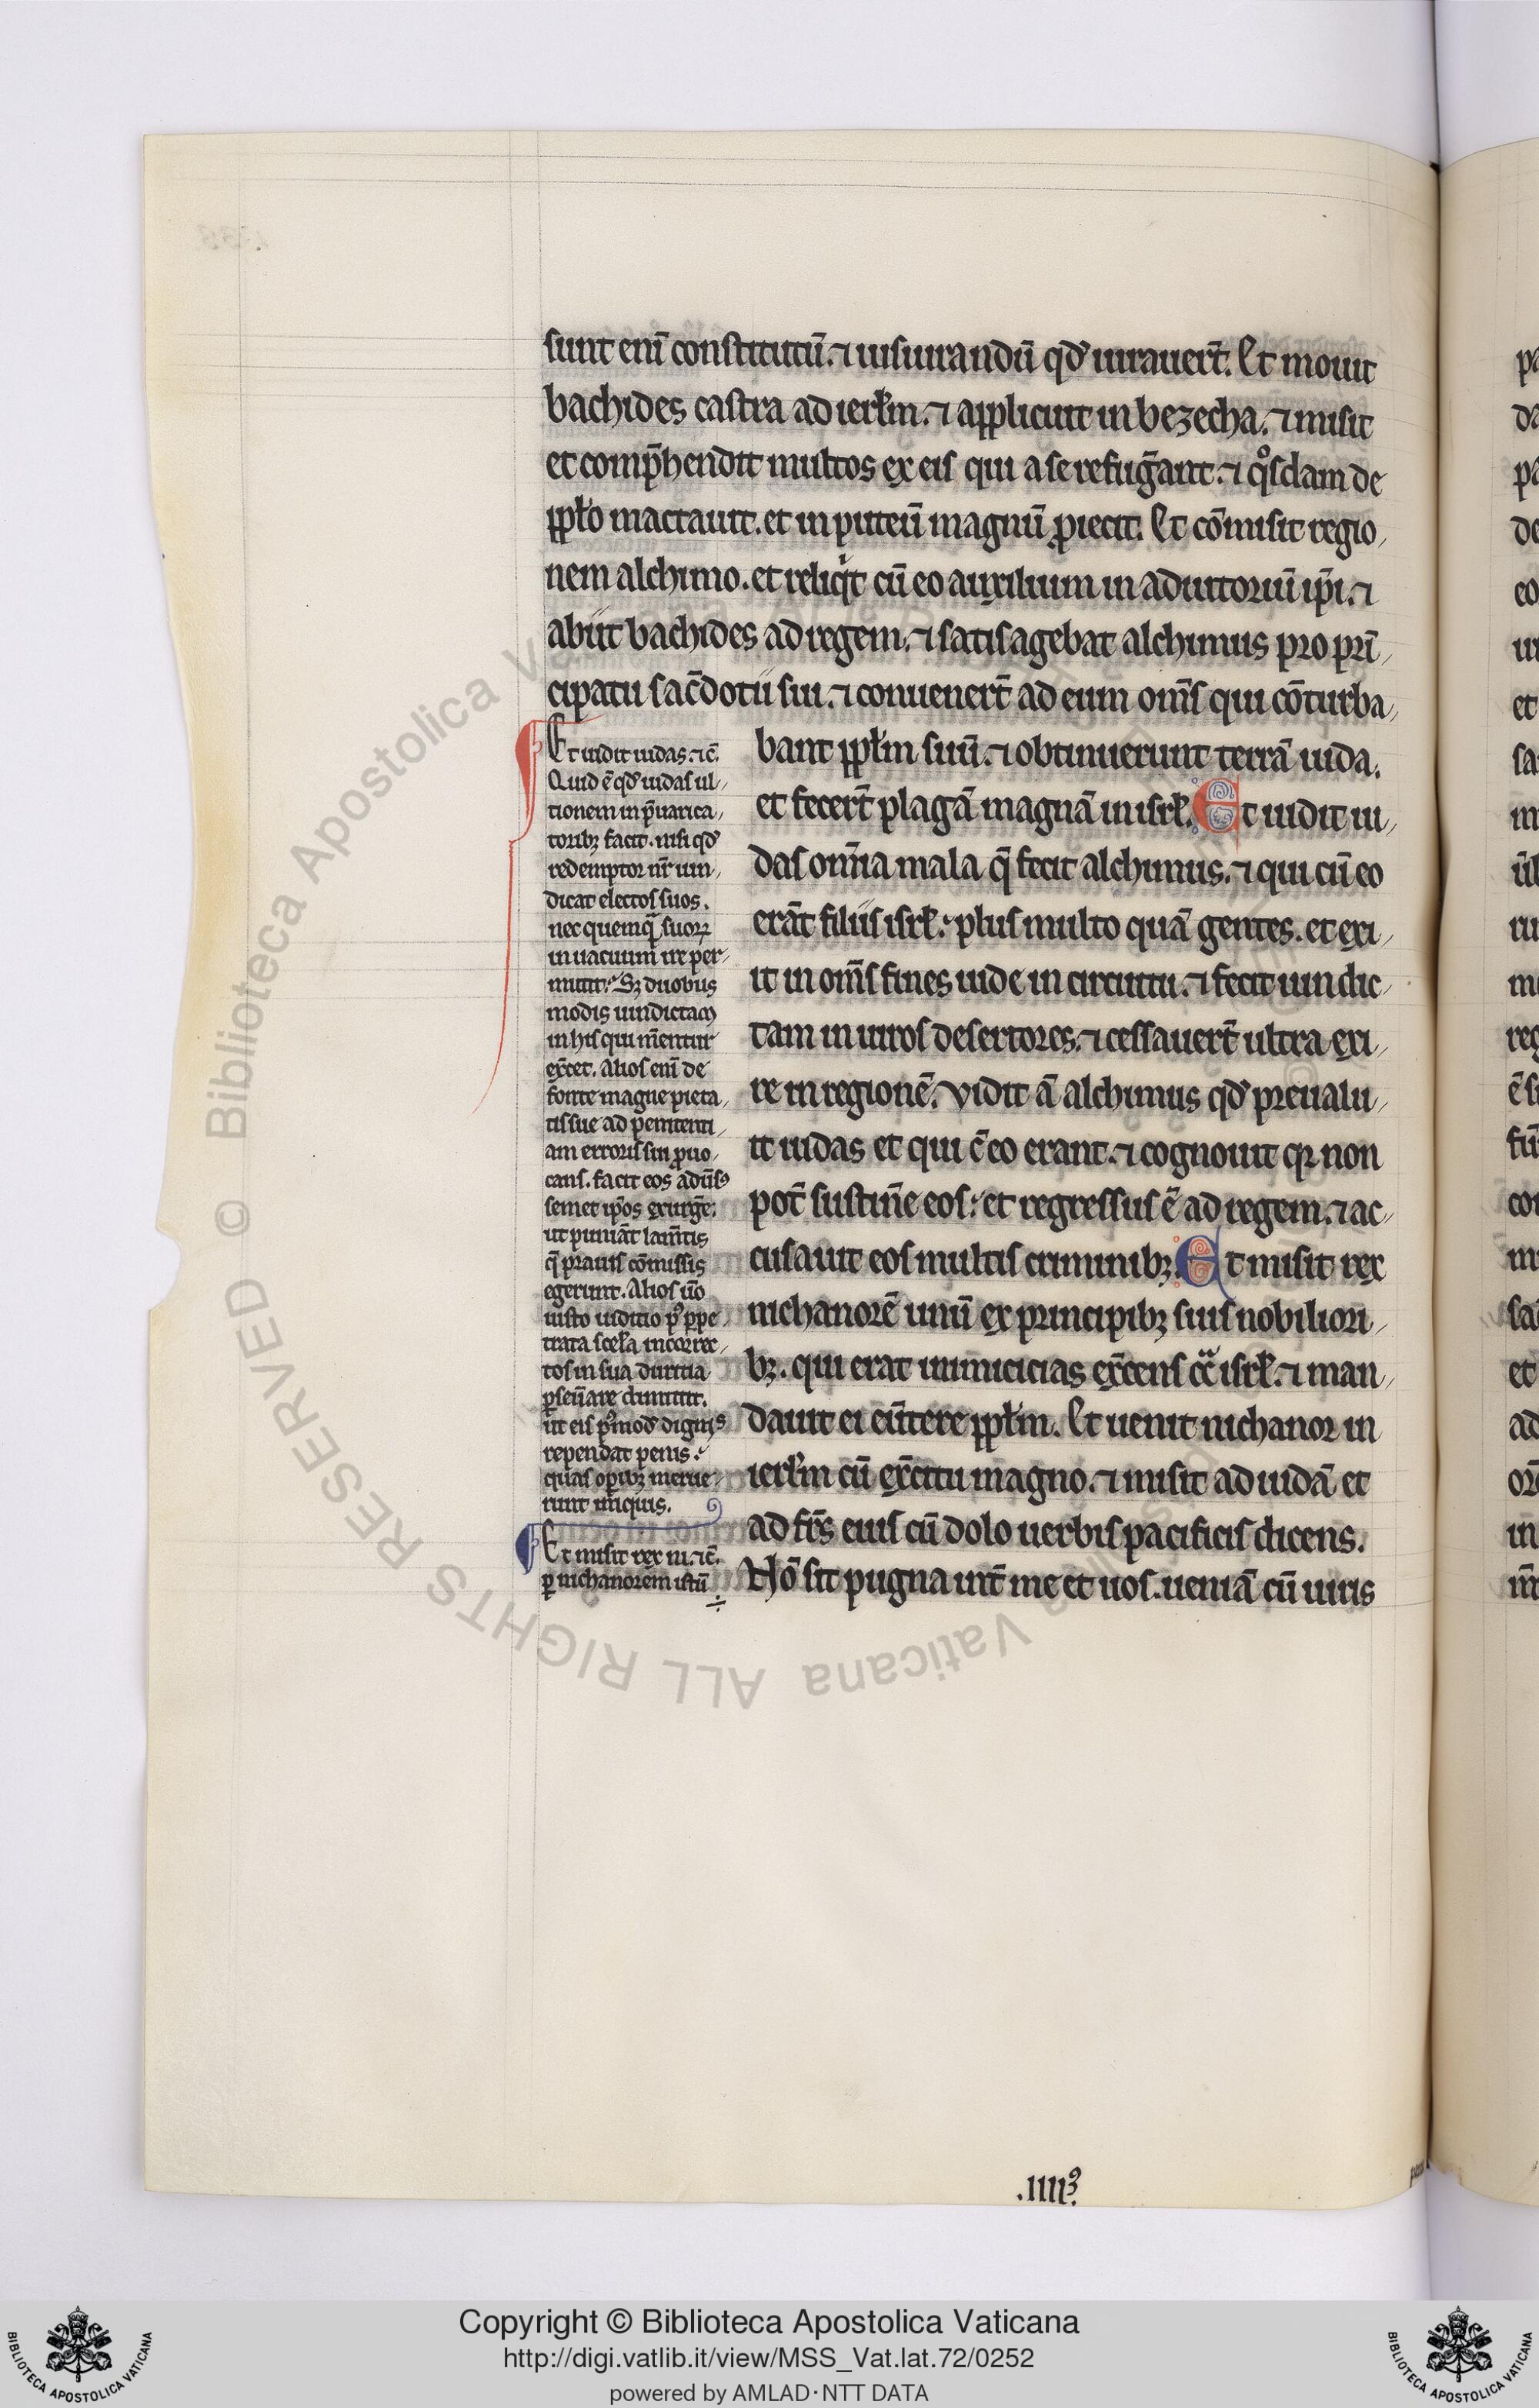 sunt eni̅ constitutu̅. ⁊ iusiurandu̅ qd̕ iurauert̅. Et mouit
bachides castra ad ierl̅m. ⁊ applicuit in bezecha. ⁊ misit
et comp̅hendit multos ex eis qui a se refug̅ant. ⁊ qͦsdam de
pplo̅ mactauit. et in puteu̅ magnu̅ ꝓiecit. Et co̅misit regio
nem alchimo. et reliqͥt cu̅ eo auxilium in adiutoriu̅ ip̅i. ⁊
abiit bachides ad regem. ⁊ satisagebat alchimus pro pri̅
cipatu sac̅dotii sui. ⁊ conuenert̅ ad eum om̅s qui co̅turba
bant ppl̅m suu̅. ⁊ obtinuerunt terra̅ iuda.
et fecert̅ plaga̅ magna̅ in isrl̅. Et uidit iu
das om̅ia mala q̅ fecit alchimus. ⁊ qui cu̅ eo
era̅t filiis isrl̅. plus multo qua̅ gentes. et exi
it in om̅s fines iude in circuitu. ⁊ fecit uindic
tam in uiros desertores. ⁊ cessauert̅ ultra exi
re in regione̅. Vidit a̅ alchimus qd̕ preualu
it iudas et qui c̅ eo erant. ⁊ cognouit qꝛ non
pot̅ sustine̅ eos. et regressus e̅ ad regem. ⁊ ac
cusauit eos multis criminibꝫ. Et misit rex
nichanore̅ unu̅ ex principibꝫ suis nobiliori
bꝫ. qui erat inimicicias ex̅cens cͣ isrl̅. ⁊ man
dauit ei eu̅tere ppl̅m. Et uenit nichanor in
ierl̅m cu̅ ex̅citu magno. ⁊ misit ad iuda̅ et
ad fr̅s eius cu̅ dolo uerbis pacificis dicens.
No̅ sit pugna int̅ me et uos. uenia̅ cu̅ uiris
Et uidit iudas. ⁊c̅.
Quid e̅ qd̕ iudas ul
tionem in p̅uarica
toribꝫ facit. nisi qd̕
redemptor nr̅ uin
dicat electos suos.
nec quemq̅ suoꝝ
in uacuum ire per
mittit. Sꝫ duobus
modis uindictam
in his qui m̅entur
ex̅cet. Alios eni̅ de
fonte magne pieta
tis sue ad penitenti
am erroris sui ꝓuo
cans. facit eos adu̅sꝰ
semet ip̅os exurge̅.
ut punia̅t lam̅tis
q̅ prauis co̅missis
egerunt. Alios u̅o
iusto iuditio pꝰ ꝑpe
trata scel̅a incorrec
tos in sua duritia
ꝑseu̅are dimittit.
ut eis pꝰmod̕ dignis
rependat penis.
quas oꝑibꝫ merue
runt iniquis.
Et misit rex ni. ⁊c̅.
ꝑ nichanorem istu̅
.IIIIꝰ.
Copyright © Biblioteca Apostolica Vaticana
http://digi.vatlib.it/view/MSS_Vat.lat.72/0252
powered by AMLAD·NTT DATA